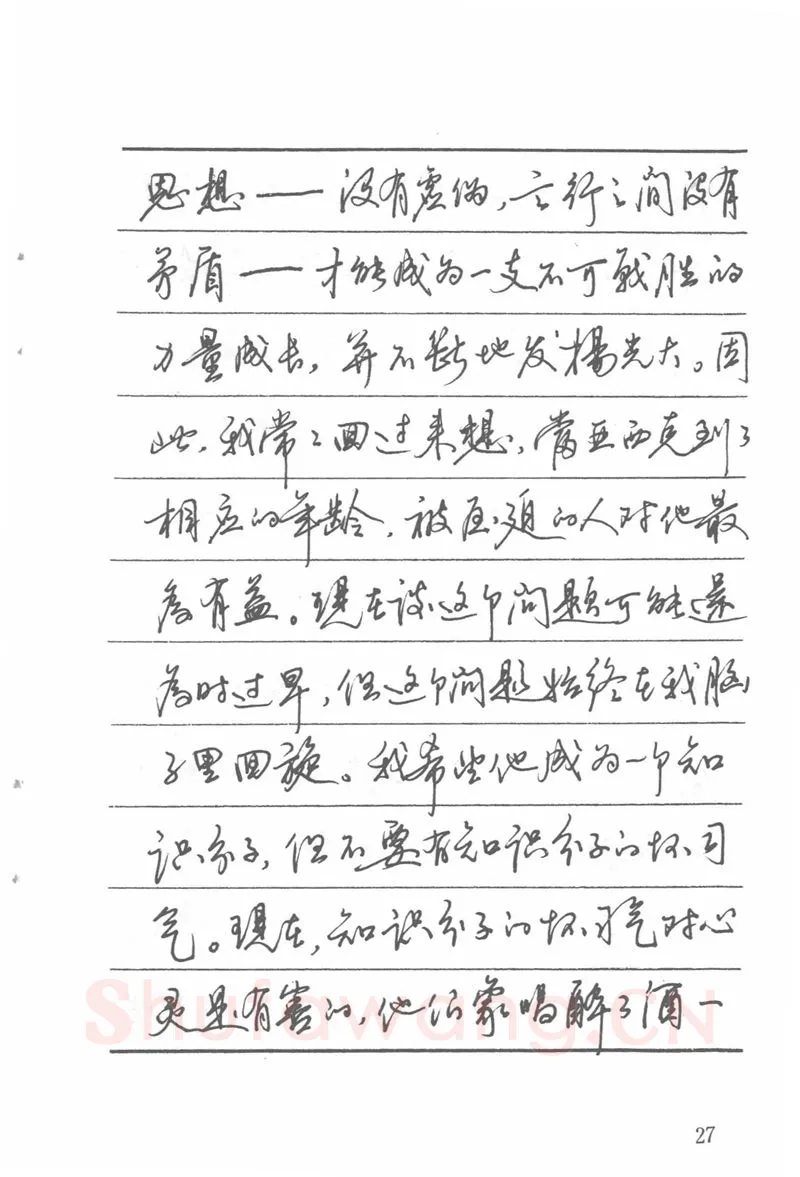 思想——没有虚伪,言行之间没有
矛盾——才能成为一支不可战胜的
力量成长,并不断地发扬光大。因
此,我常々回过来想,当亚西克到了
相应的年龄,被压迫的人对他最
为有益。现在谈这个问题可能还
为时过早,但这个问题始终在我脑
子里回旋。我希望他成为一个知
识分子,但不要有知识分子的坏习
气。现在,知识分子的坏习气对心
灵是有害的,他们象喝醉了酒一
Shufawang.CN
27